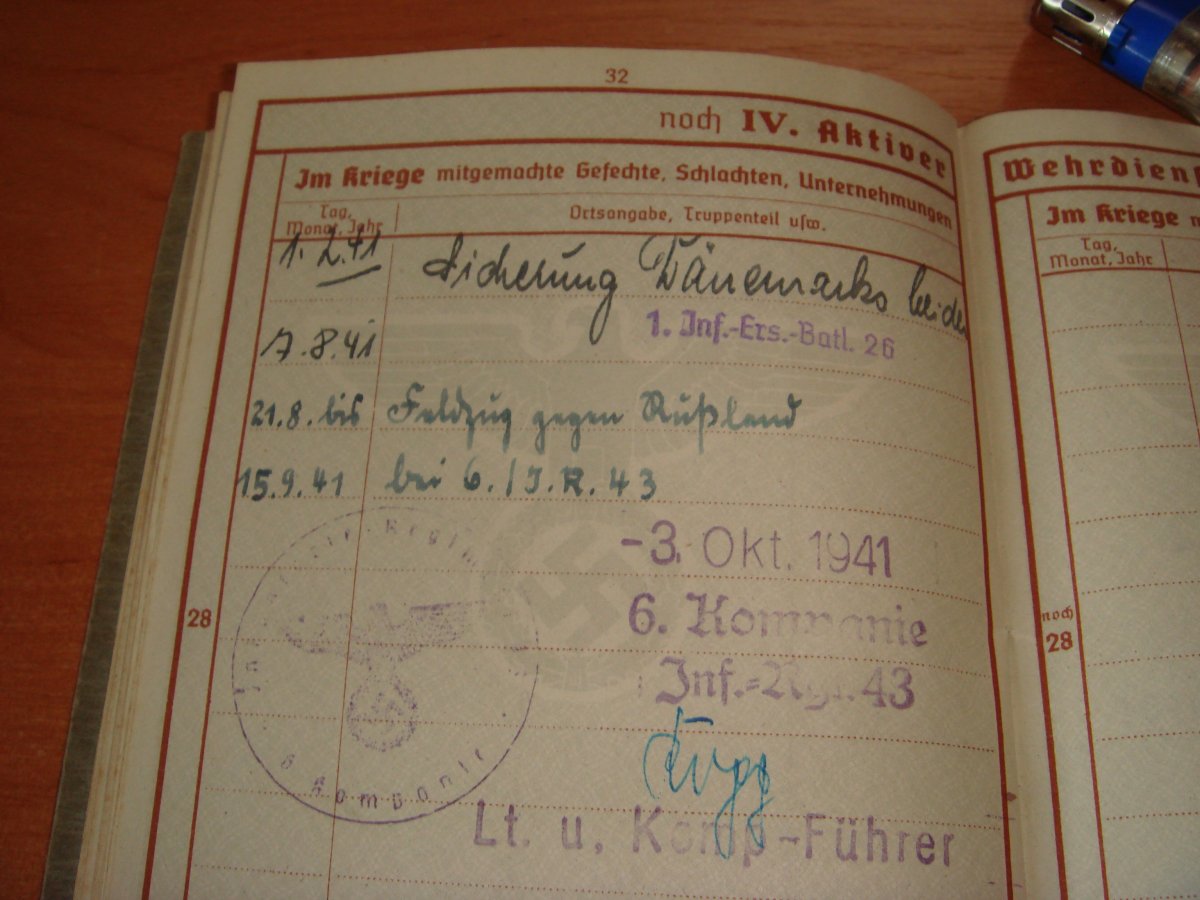 32
noch IV. Aktiver
Im Kriege mitgemachte Gefechte, Schlachten, Unternehmungen
Tag, Monat, Jahr
Ortsangabe, Truppenteil usw.
1. 2.41 Sicherung Dänemarks beider
1. Inf.-Ers.-Batl. 26
7.8.41
21.8. bis Feldzug gegen Rußland
15.9.41 bei 6./J.R. 43
-3. Okt. 1941
6. Kompanie
Inf.=Rgt. 43
28
6 Kompanie
Lt. u. Komp-Führer
Wehrdienst
Im Kriege
Tag,
Monat, Jahr
noch
28